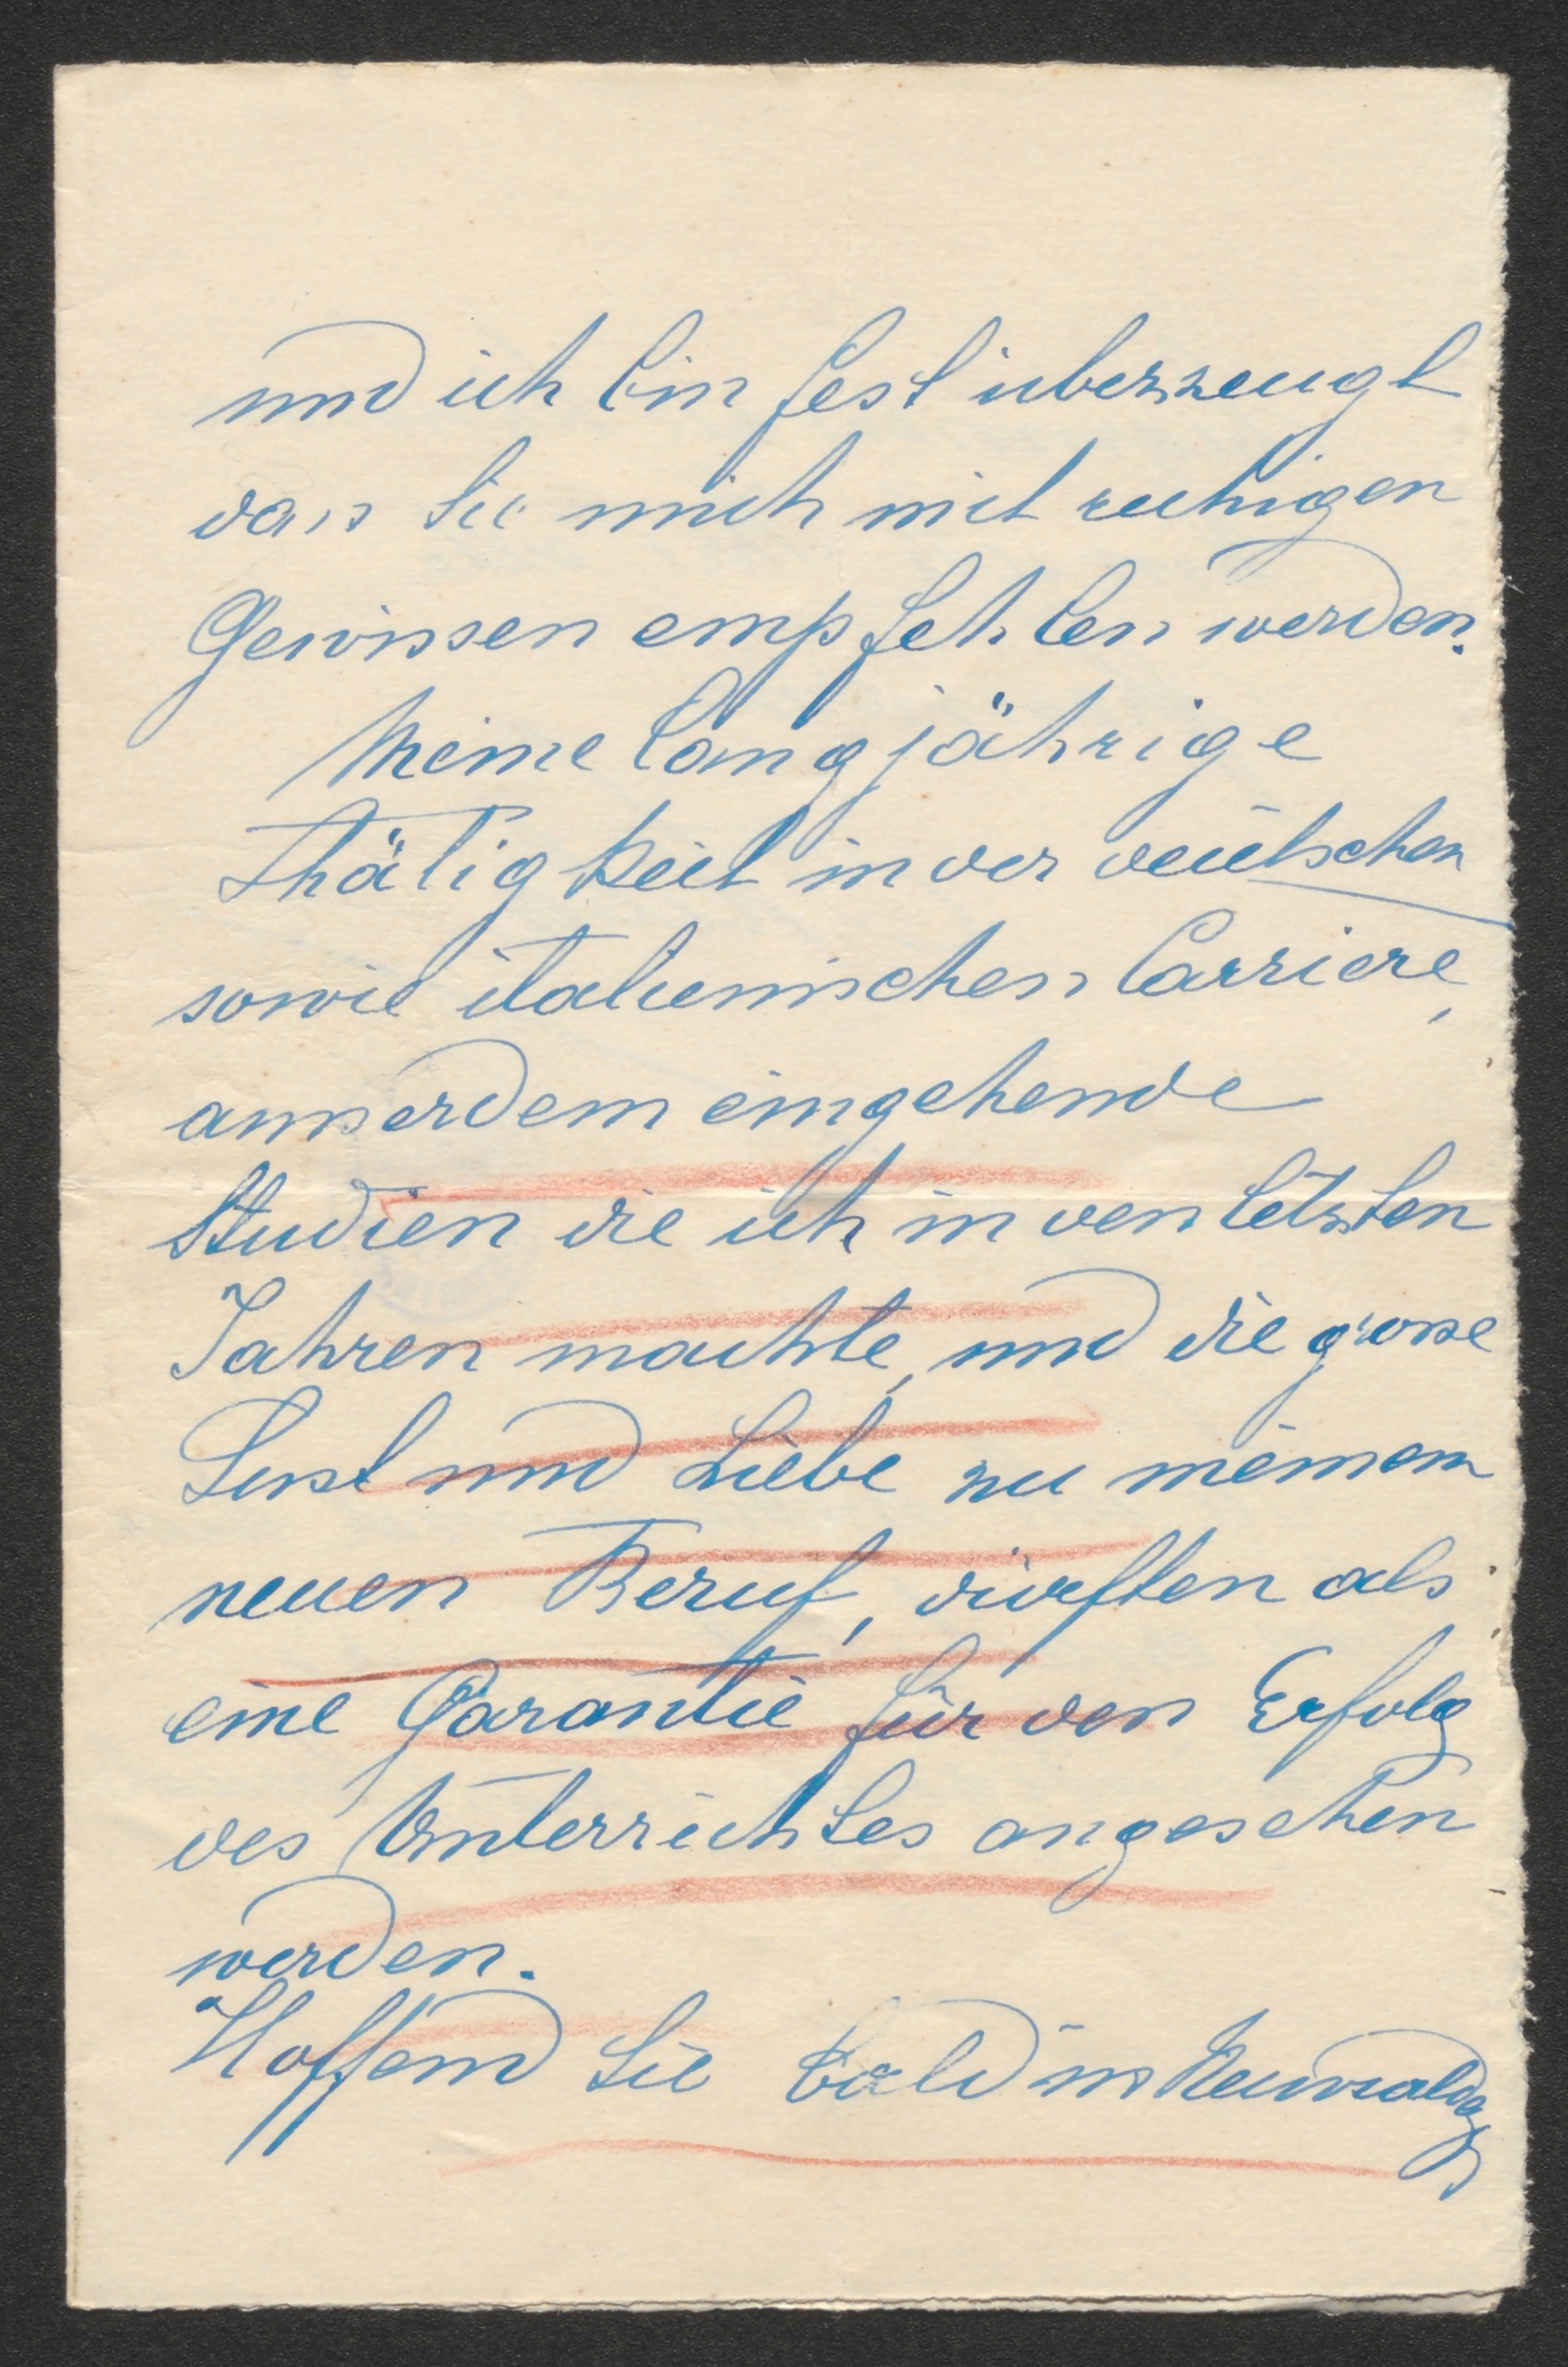 und ich bin fest überzeugt
dass Sie mich mit ruhigen
Gewissen empfehlen werden.
Meine langjährige
Thätigkeit in der deutschen
sowie italienischen Carriere,
ausserdem eingehende
Studien die ich in den letzten
Jahren machte, und die grosse
Lust und Liebe zu meinem
neuen Beruf, dürften als
eine Garantie für den Erfolg
des Unterrichtes angesehen
werden.
Hoffend Sie bald in Neuwaldg